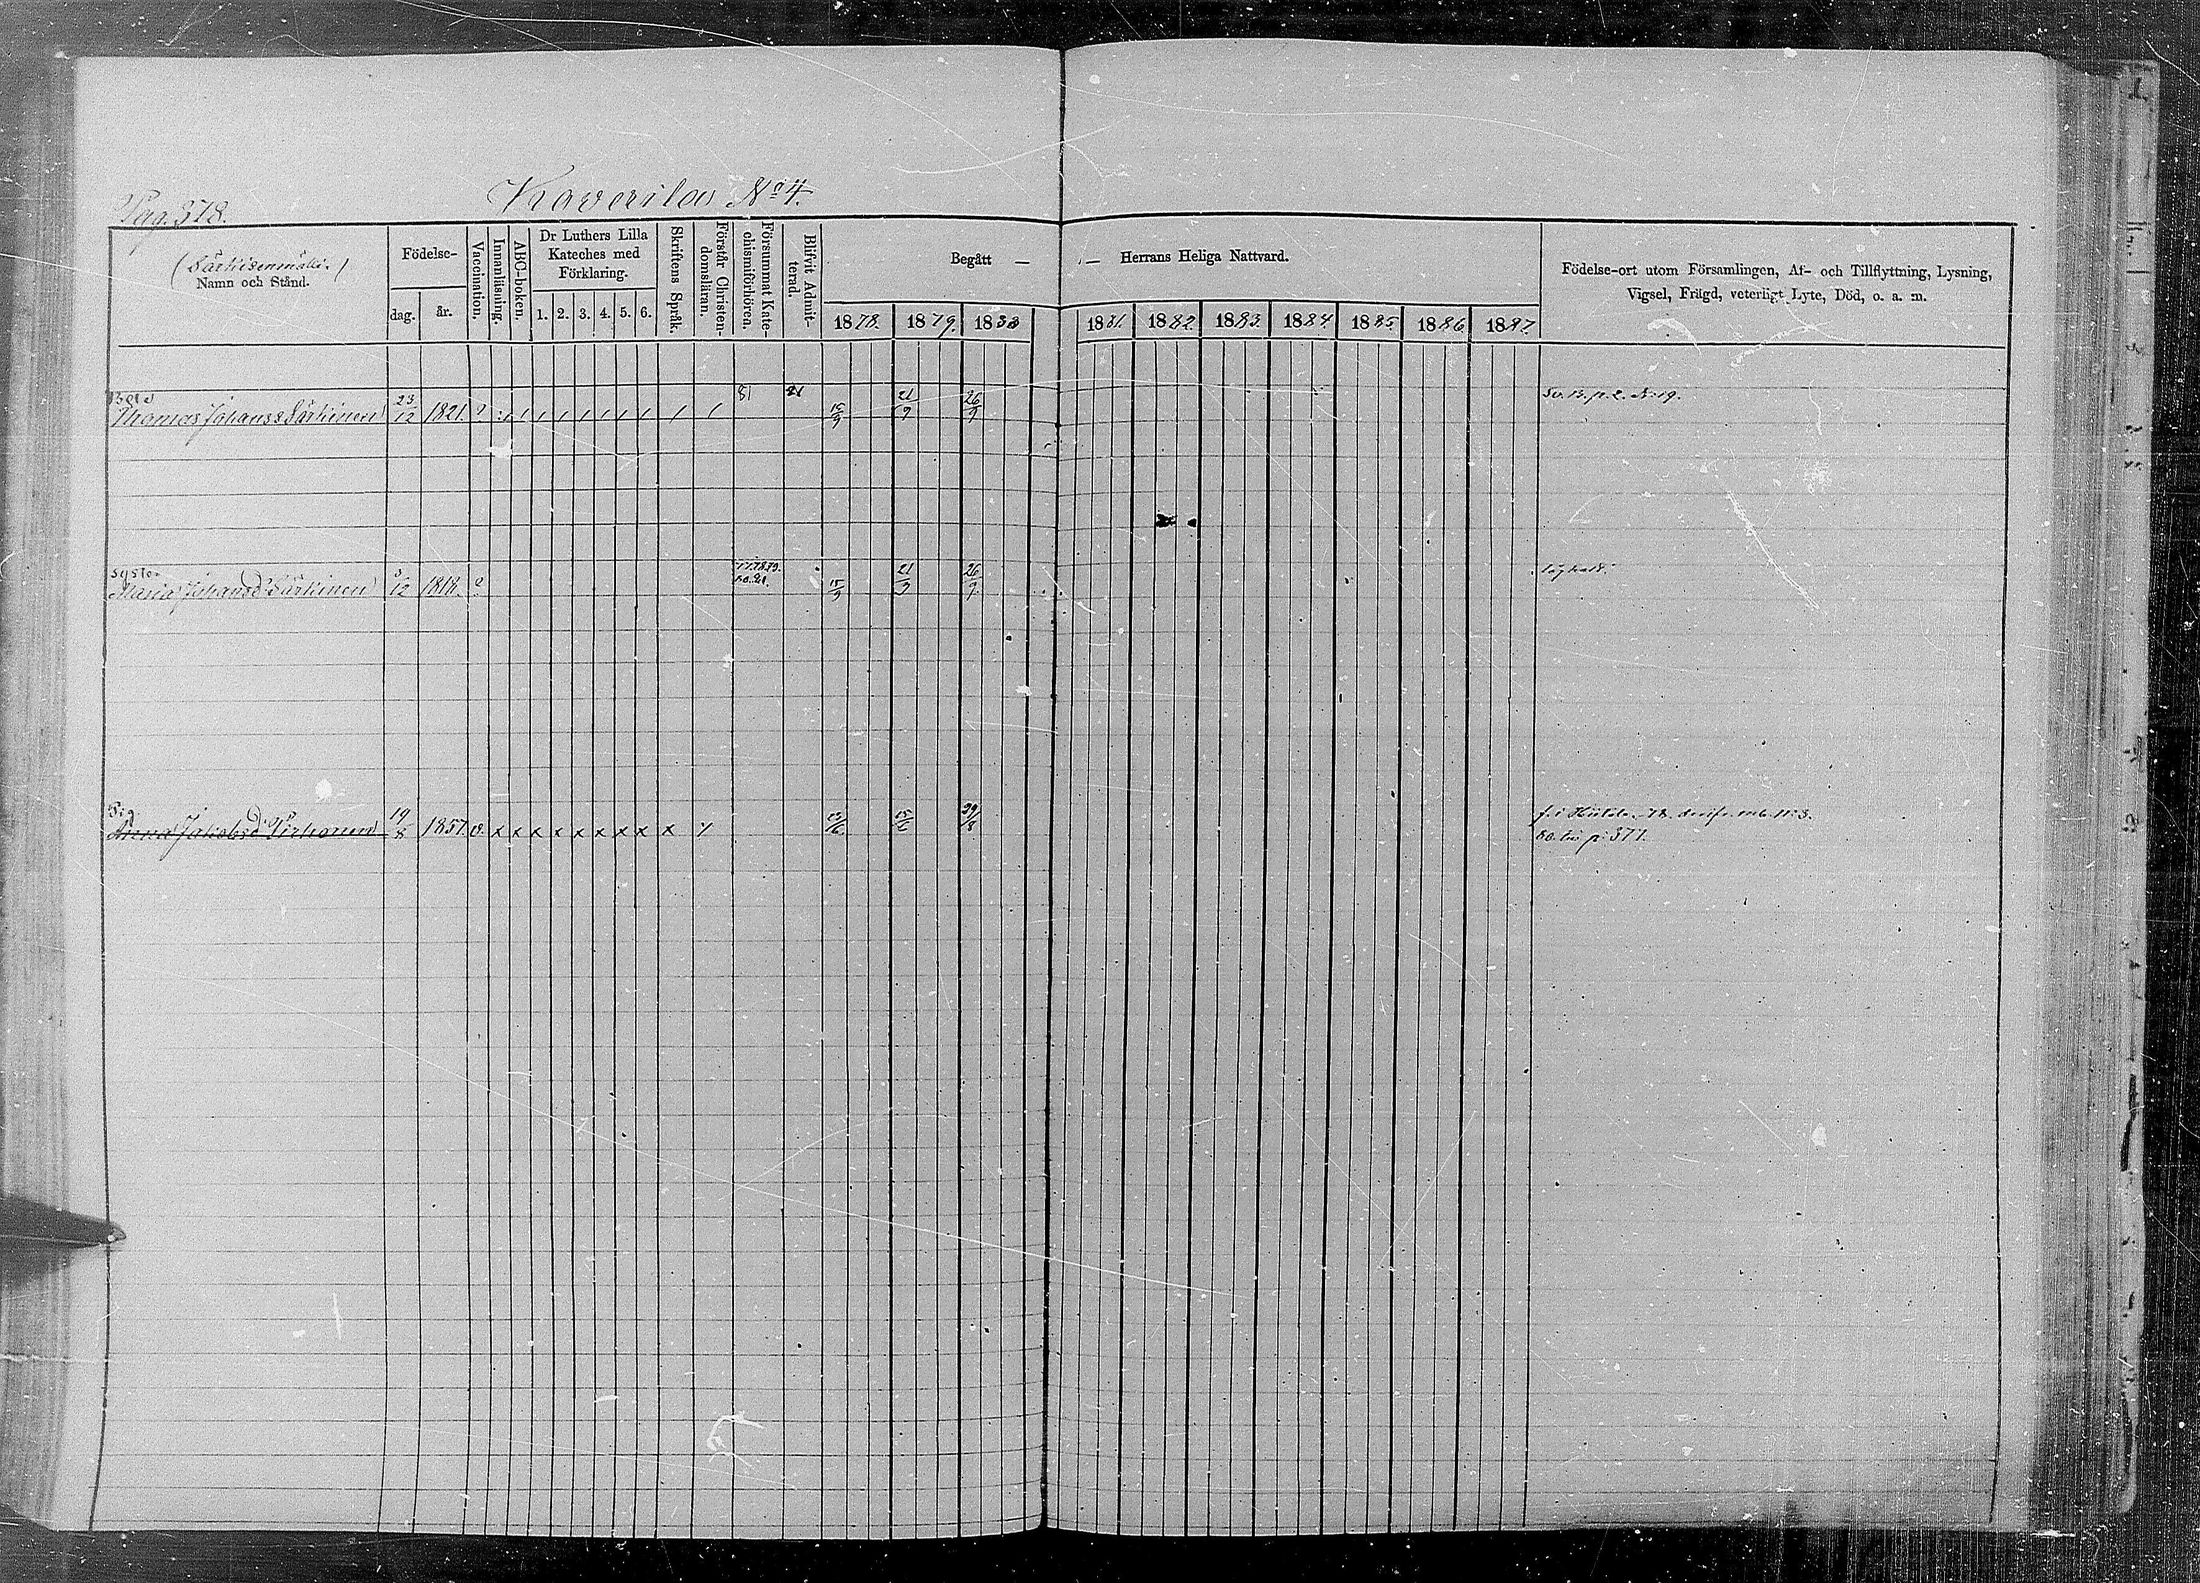 Pag. 378.
Kaverila No 4.
(Särkisenmäki.)
Namn och Stånd.
Födelse-
dag.
år.
Vaccination.
Innanläsning.
ABC-boken.
Dr Luthers Lilla
Kateches med
Förklaring.
1. 2. 3. 4. 5. 6.
Skriftens Språk.
Förstår Christen-
domsläran.
Försummat Kate-
chismiförhören.
Blifvit Admit-
terad.
Begått —
— Herrans Heliga Nattvard.
1878. 1879. 1880 1881. 1882. 1883. 1884. 1885 1886 1887.
Födelse-ort utom Församlingen, Af- och Tillflyttning, Lysning,
Vigsel, Frägd, veterligt Lyte, Död, o. a. m.
Thomas Johanss Särkinen 23/12 1821. 81 15/9 21/9 26/9
syster
Maria Johansd Särkinen 3/12 1818. 15/9 21/9 26/9
Pig
Anna Jakobsd Pirhonen 19/8 1857. v. x x x x x x x x x x
p. 377.